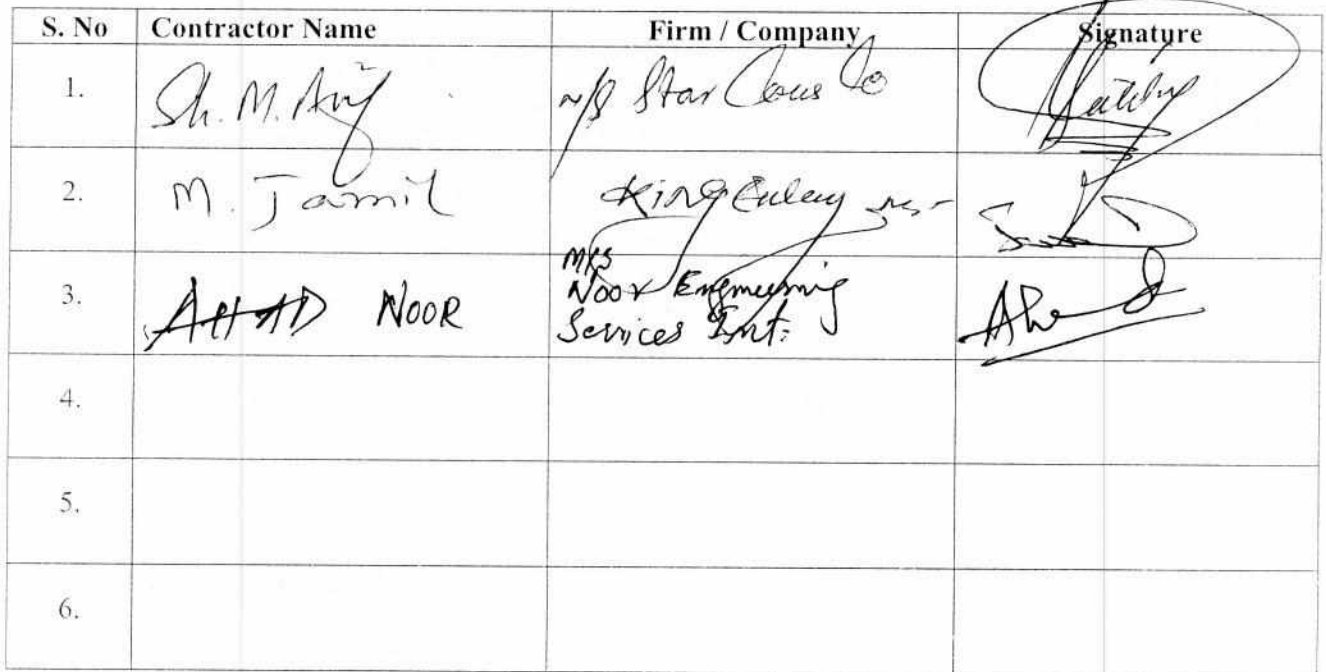 S. No Contractor Name Firm / Company Signature
1. Sh. M. M/S Star Cons Co
2. M. Jamil King
M/S
3. AHAD NOOR Noor Engineering
Services Int:
4.
5.
6.